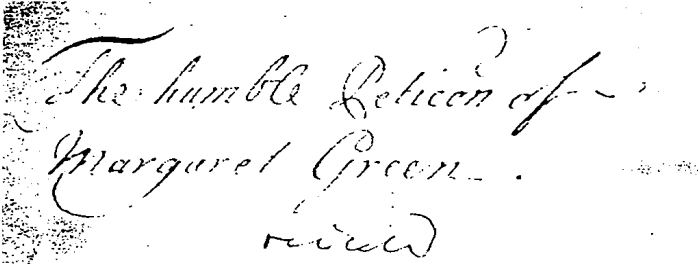 The humble Peticon of
Margaret Green